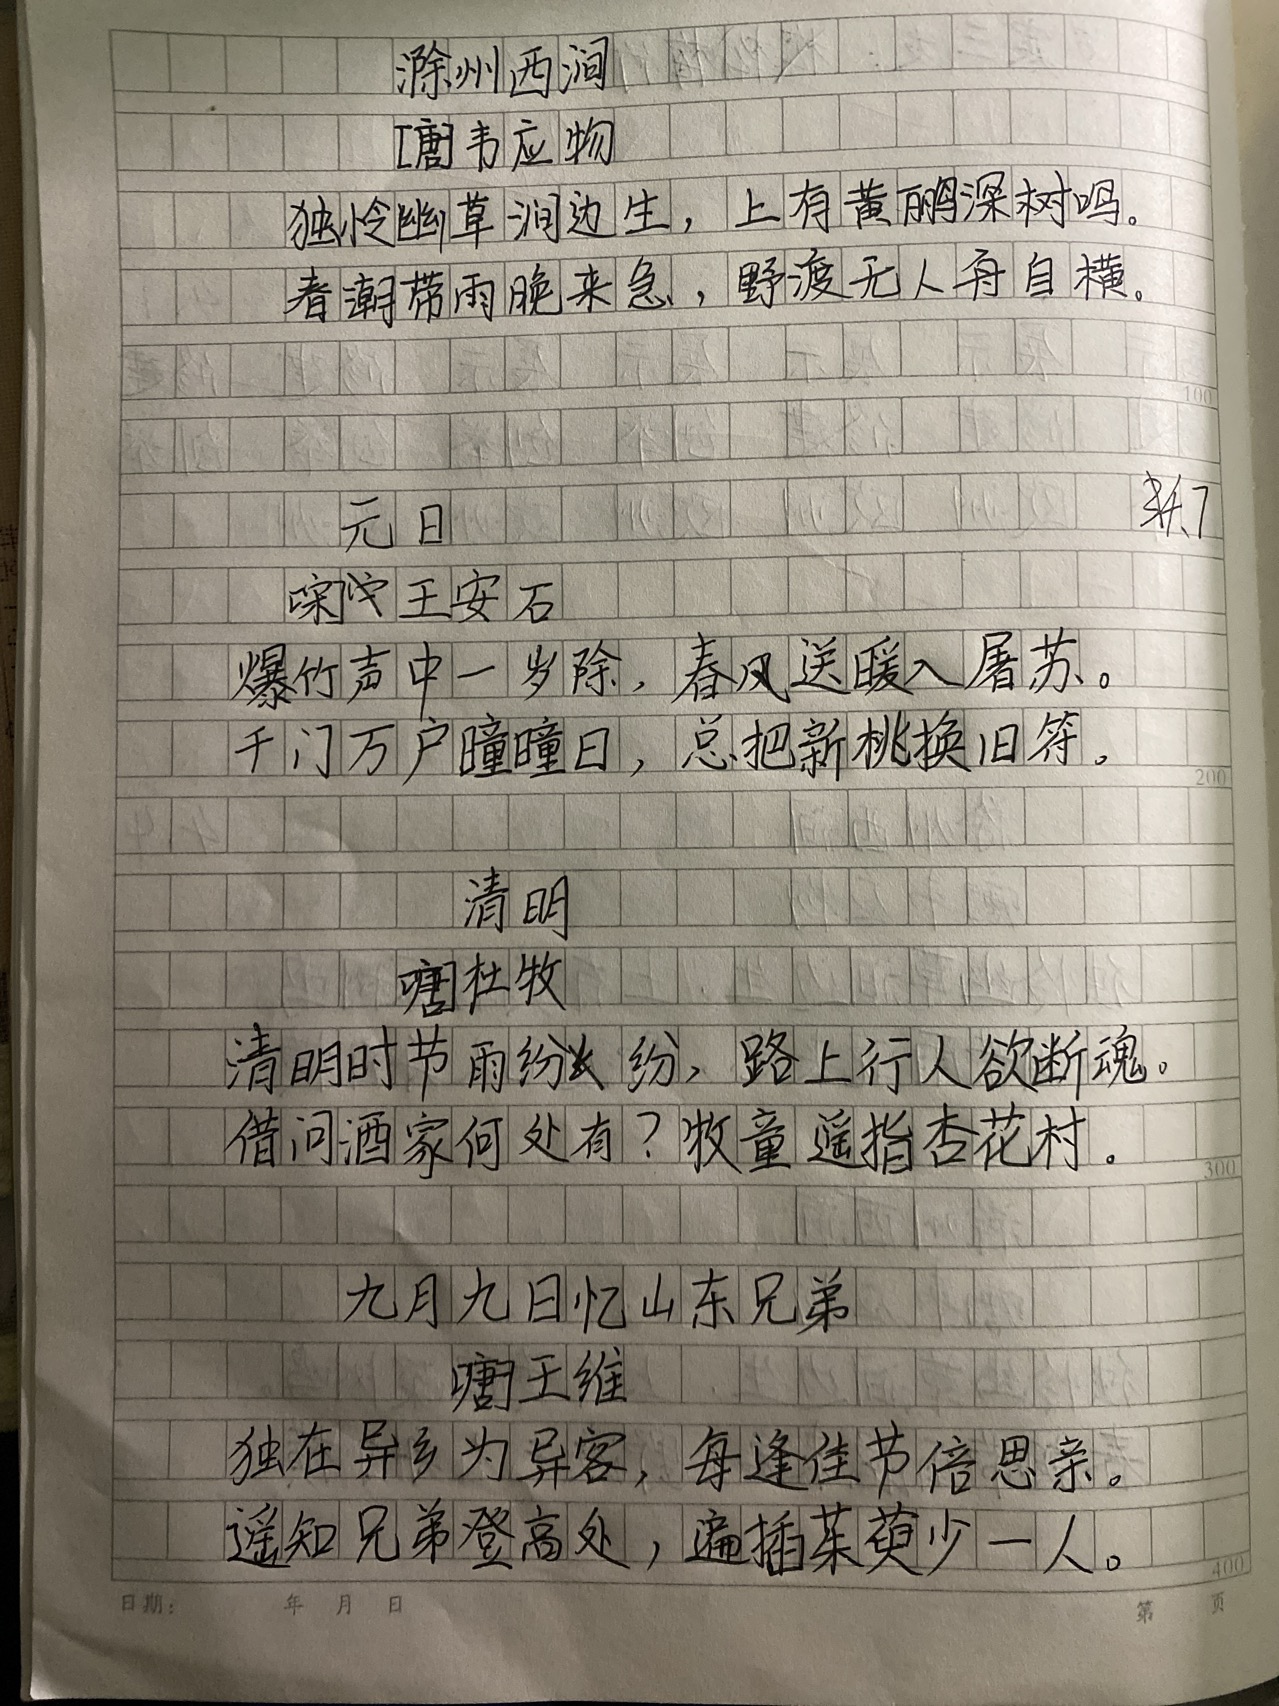 滁州西涧
[唐]韦应物
独怜幽草涧边生，上有黄鹂深树鸣。
春潮带雨晚来急，野渡无人舟自横。
100
元日
[宋]王安石
爆竹声中一岁除，春风送暖入屠苏。
千门万户曈曈日，总把新桃换旧符。
200
清明
[唐]杜牧
清明时节雨纷纷，路上行人欲断魂。
借问酒家何处有？牧童遥指杏花村。
300
九月九日忆山东兄弟
[唐]王维
独在异乡为异客，每逢佳节倍思亲。
遥知兄弟登高处，遍插茱萸少一人。
400
日期： 年 月 日 第 页